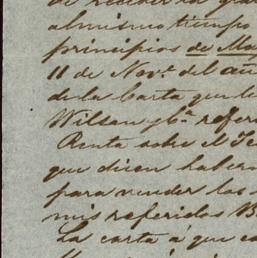 de recibir la
al mismo tiempo
principios de Ma
11 de Nov.e del añ
de la Carta que le
Wilson y C.a refer
Renta sobre el Te
que dicen haber
para vender los
mis referidos B
La carta á que co